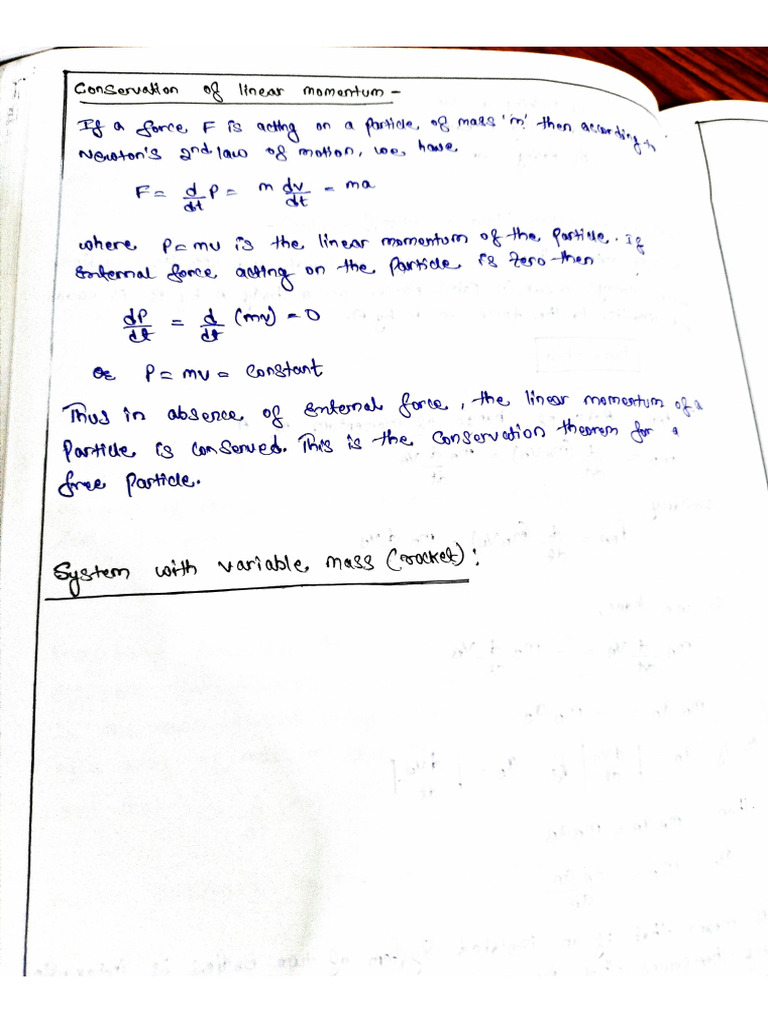 Conservation of linear momentum -
If a force F is acting on a particle of mass 'm' then according to
Newton's 2nd law of motion, we have
F = d/dt P = m dv/dt = ma
where P = mv is the linear momentum of the particle. If
external force acting on the particle is zero then
dP/dt = d/dt (mv) = 0
or P = mv = constant
Thus in absence of external force, the linear momentum of a
particle is conserved. This is the conservation theorem for a
free particle.
System with variable mass (rocket):